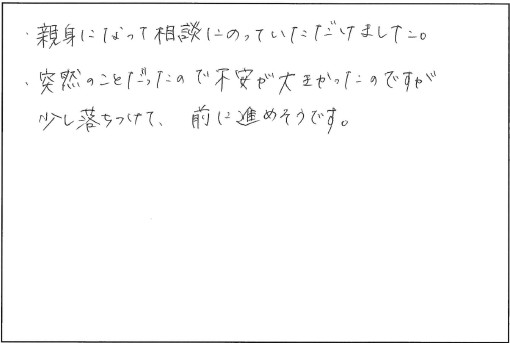 ・親身になって相談にのっていただけました。
・突然のことだったので不安が大きかったのですが
少し落ちつけて、前に進めそうです。